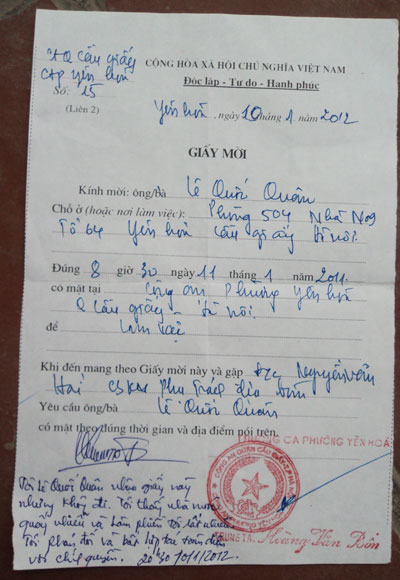 CA Q Cầu giấy
CAP Yên hòa
Số: 15
(Liên 2)
CỘNG HÒA XÃ HỘI CHỦ NGHĨA VIỆT NAM
Độc lập - Tự do - Hạnh phúc
Yên hòa, ngày 10 tháng 1 năm 2012
GIẤY MỜI
Kính mời: ông/bà Lê Quốc Quân
Chỗ ở (hoặc nơi làm việc): Phòng 504 Nhà N09
Tổ 64 Yên hòa Cầu giấy Hà nội.
Đúng 8 giờ 30 ngày 11 tháng 1 năm 2011
có mặt tại Công an Phường Yên hòa
Q Cầu giấy - Hà nội.
để Làm việc
Khi đến mang theo Giấy mời này và gặp Đ/c Nguyễn văn
Hải CSKV phụ trách địa bàn
Yêu cầu ông/bà Lê Quốc Quân
có mặt theo đúng thời gian và địa điểm nói trên.
TRƯỞNG CA PHƯỜNG YÊN HOÀ
CÔNG AN QUẬN CẦU GIẤY
TRUNG TÁ. Hoàng Văn
Tôi Lê Quốc Quân nhận giấy này
nhưng không đi. Tôi thấy nhà nước
quấy nhiễu và làm phiền tôi rất nhiều
Tôi phản đối và bất hợp tác toàn diện
với chính quyền. 20h30 10/1/2012.